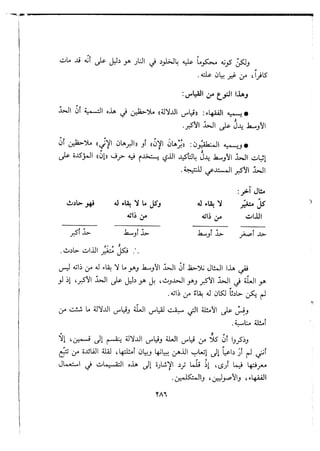 ولكنّ كونه محكوماً عليه بالخلود في النار هو دليل على أنّه قد مات
كافراً، من غير بيان علّته.
وهذا النوع من القياس:
● يسميه الفقهاء: «قياس الدلالة» ملاحظين في هذه التسمية أنّ الحدّ
الأوسط يدلّ على الحدّ الأكبر.
● ويسميه المنطقيون: «برهان إنّ» أو «البرهان الإنّي» ملاحظين أنّ
إثبات الحدّ الأوسط يدلّ بالتأكيد الذي يستخدم فيه حرف «إنّ» المؤكدة على
الحدّ الأكبر المستدعي للنتيجة.
مثال آخر:
كلّ متغيّر لا بقاء له وكل ما لا بقاء له فهو حادث
الذات من ذاته من ذاته
حدّ أصغر حدّ أوسط حدّ أوسط حدّ أكبر
∴ فكلّ متغيّر الذات حادث.
ففي هذا المثال نلاحظ أنّ الحدّ الأوسط وهو ما لا بقاء له من ذاته ليس
هو العلّة في الحدّ الأكبر وهو الحدوث، بل هو دليل على الحدّ الأكبر، إذ لو
لم يكن حادثاً لكان له بقاء من ذاته.
وقِسْ على الأمثلة التي سبقت لقياس العلّة وقياس الدلالة ما شئت من
أمثلة مناسبة.
وذكروا أنّ كلاً من قياس العلّة وقياس الدلالة ينقسم إلى قسمين، إلّا
أنني لم أرَ داعياً إلى إتعاب الذهن ببيانها وبيان أمثلتها، لقلة الفائدة من تتبّع
معرفتها فيما أرى، إذ قلّما ترد الإشارة إلى هذه التقسيمات في استعمال
الفقهاء، والأصوليين، والمتكلمين.
٢٨٦